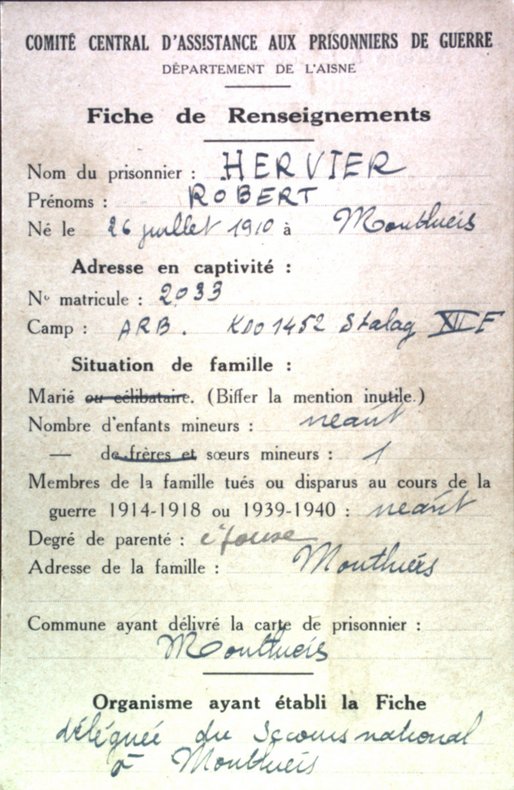 COMITÉ CENTRAL D'ASSISTANCE AUX PRISONNIERS DE GUERRE
DÉPARTEMENT DE L'AISNE
Fiche de Renseignements
Nom du prisonnier : HERVIER
Prénoms : ROBERT
Né le 26 juillet 1910 à Monthiers
Adresse en captivité :
No matricule : 2033
Camp : ARB. KDO 1452 Stalag XII F
Situation de famille :
Marié ou célibataire. (Biffer la mention inutile.)
Nombre d'enfants mineurs : néant
— de frères et sœurs mineurs : 1
Membres de la famille tués ou disparus au cours de la
guerre 1914-1918 ou 1939-1940 : néant
Degré de parenté : épouse
Adresse de la famille : Monthiers
Commune ayant délivré la carte de prisonnier :
Monthiers
Organisme ayant établi la Fiche
déléguée du Secours national
à Monthiers